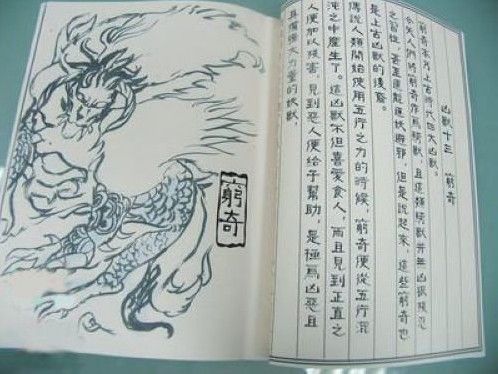 凶獸十三 窮奇
窮奇本為上古時代四大凶獸。
今天人們將窮奇作為騎獸,且這類騎獸并無凶狠殘忍
之習性,甚至還能逐妖避邪,但是說起來,這些窮奇也
是上古凶獸的後裔。
傳說人類開始使用五行之力的時候,窮奇便從五行混
沌之中產生了。這凶獸不但喜愛食人,而且見到正直之
人便加以殘害,見到惡人便給予幫助,是極為凶惡且
具備強大力量的妖獸。
窮奇